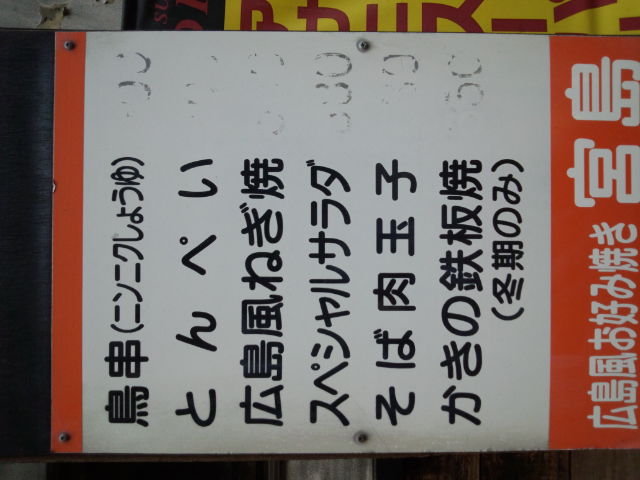 鳥串(ニンニクしょうゆ)
とんぺい
広島風ねぎ焼
スペシャルサラダ
そば肉玉子
かきの鉄板焼
(冬期のみ)
広島風お好み焼き 宮島